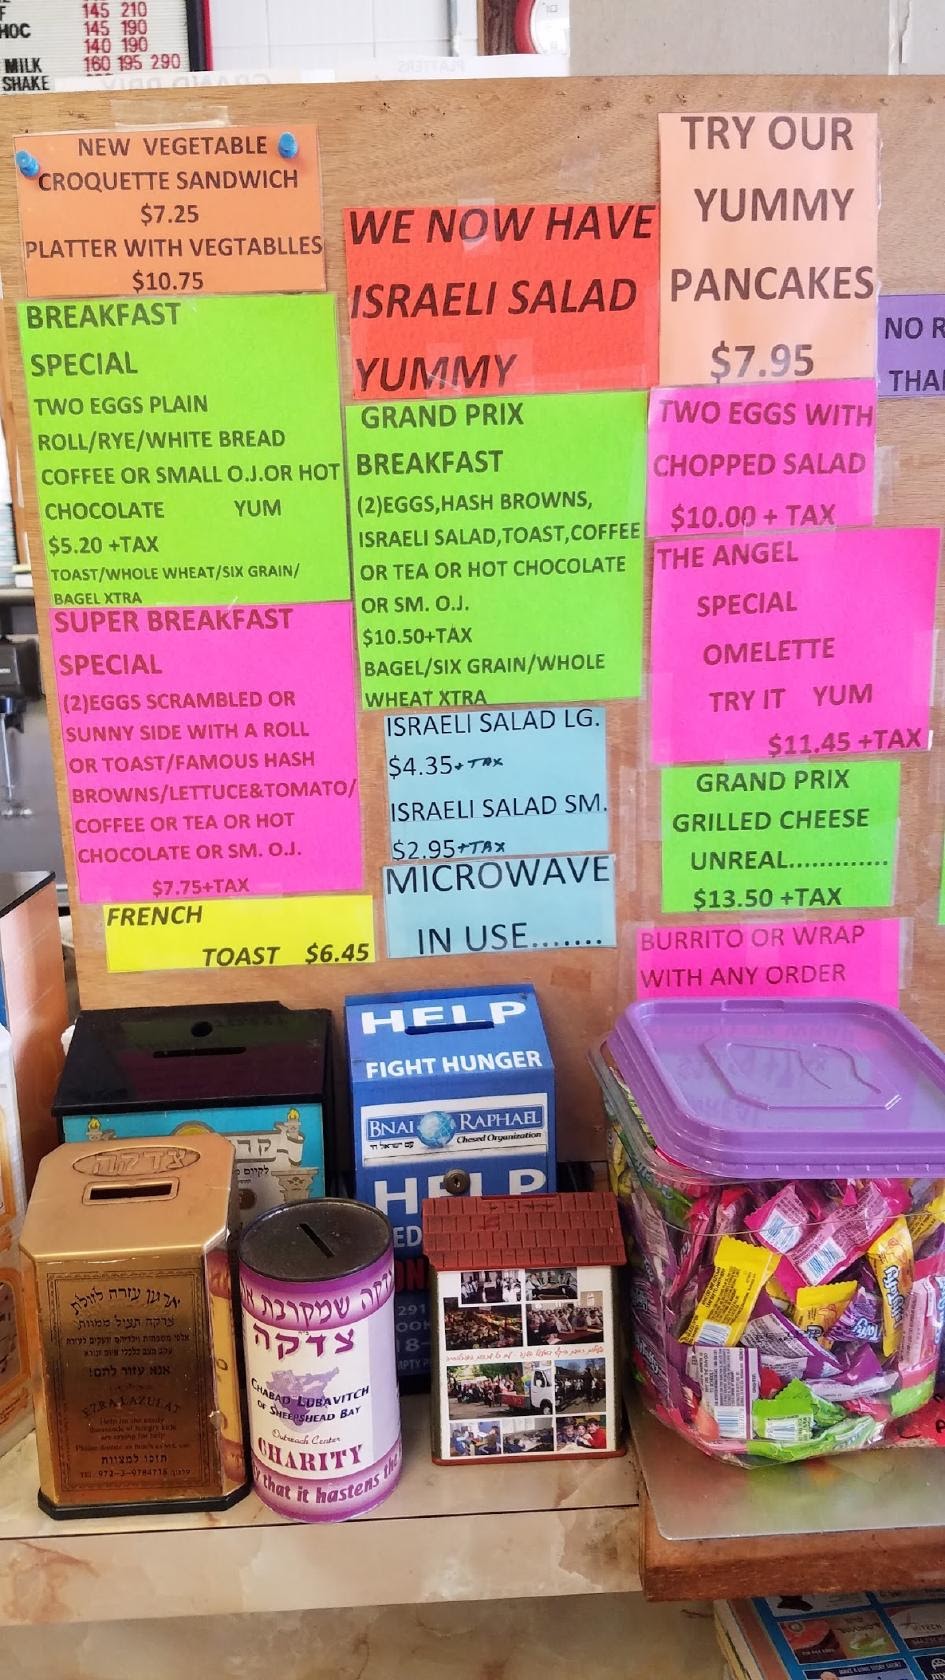 145 210
HOC 145 190
140 190
MILK 160 195 290
SHAKE
NEW VEGETABLE
CROQUETTE SANDWICH
$7.25
PLATTER WITH VEGTABLLES
$10.75
BREAKFAST
SPECIAL
TWO EGGS PLAIN
ROLL/RYE/WHITE BREAD
COFFEE OR SMALL O.J.OR HOT
CHOCOLATE YUM
$5.20 +TAX
TOAST/WHOLE WHEAT/SIX GRAIN/
BAGEL XTRA
SUPER BREAKFAST
SPECIAL
(2)EGGS SCRAMBLED OR
SUNNY SIDE WITH A ROLL
OR TOAST/FAMOUS HASH
BROWNS/LETTUCE&TOMATO/
COFFEE OR TEA OR HOT
CHOCOLATE OR SM. O.J.
$7.75+TAX
FRENCH
TOAST $6.45
WE NOW HAVE
ISRAELI SALAD
YUMMY
GRAND PRIX
BREAKFAST
(2)EGGS,HASH BROWNS,
ISRAELI SALAD,TOAST,COFFEE
OR TEA OR HOT CHOCOLATE
OR SM. O.J.
$10.50+TAX
BAGEL/SIX GRAIN/WHOLE
WHEAT XTRA
ISRAELI SALAD LG.
$4.35+TAX
ISRAELI SALAD SM.
$2.95+TAX
MICROWAVE
IN USE.......
TRY OUR
YUMMY
PANCAKES
$7.95
TWO EGGS WITH
CHOPPED SALAD
$10.00 + TAX
THE ANGEL
SPECIAL
OMELETTE
TRY IT YUM
$11.45 +TAX
GRAND PRIX
GRILLED CHEESE
UNREAL.............
$13.50 +TAX
BURRITO OR WRAP
WITH ANY ORDER
NO
HELP
FIGHT HUNGER
BNAI RAPHAEL
Chesed Organization
עם ישראל חי
HELP
צדקה
צדקה תציל ממוות
אנא עזור להם!
EZRA LAZULAT
Help for the needy
תזכו למצוות
TEL. 972-3-9784716
צדקה שמקרבת
צדקה
CHABAD-LUBAVITCH
OF SHEEPSHEAD BAY
Outreach Center
CHARITY
that it hastens the